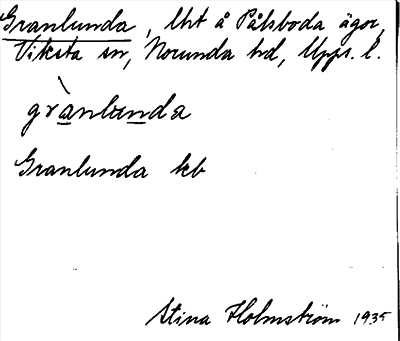 Granlunda, lht å Pålsboda ägor,
Viksta sn, Norunda hd, Upps. l.
grànlùnda
Granlunda kb
Stina Holmström 1935